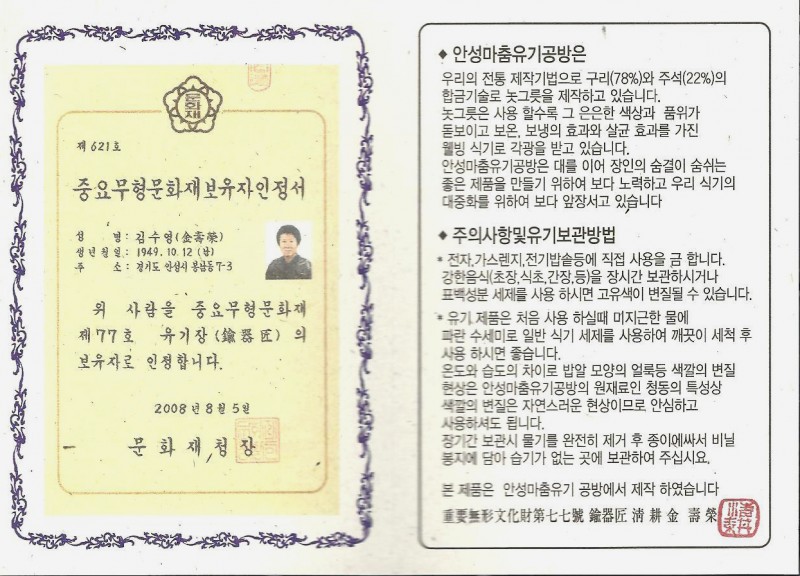 문화재
제 621호
중요무형문화재보유자인정서
성 명 : 김수영(金壽榮)
생년월일 : 1949. 10. 12 (남)
주 소 : 경기도 안성시 봉남동 7-3
위 사람을 중요무형문화재
제77호 유기장(鍮器匠)의
보유자로 인정합니다.
2008년 8월 5일
문화재청장
◆ 안성마춤유기공방은
우리의 전통 제작기법으로 구리(78%)와 주석(22%)의
합금기술로 놋그릇을 제작하고 있습니다.
놋그릇은 사용 할수록 그 은은한 색상과 품위가
돋보이고 보온, 보냉의 효과와 살균 효과를 가진
웰빙 식기로 각광을 받고 있습니다.
안성마춤유기공방은 대를 이어 장인의 숨결이 숨쉬는
좋은 제품을 만들기 위하여 보다 노력하고 우리 식기의
대중화를 위하여 보다 앞장서고 있습니다
◆ 주의사항및유기보관방법
* 전자,가스렌지,전기밥솥등에 직접 사용을 금 합니다.
강한음식(초장,식초,간장,등)을 장시간 보관하시거나
표백성분 세제를 사용 하시면 고유색이 변질될 수 있습니다.
* 유기 제품은 처음 사용 하실때 미지근한 물에
파란 수세미로 일반 식기 세제를 사용하여 깨끗이 세척 후
사용 하시면 좋습니다.
온도와 습도의 차이로 밥알 모양의 얼룩등 색깔의 변질
현상은 안성마춤유기공방의 원재료인 청동의 특성상
색깔의 변질은 자연스러운 현상이므로 안심하고
사용하셔도 됩니다.
장기간 보관시 물기를 완전히 제거 후 종이에싸서 비닐
봉지에 담아 습기가 없는 곳에 보관하여 주십시요.
본 제품은 안성마춤유기 공방에서 제작 하였습니다
重要無形文化財第七七號 鍮器匠 淸 耕 金 壽 榮